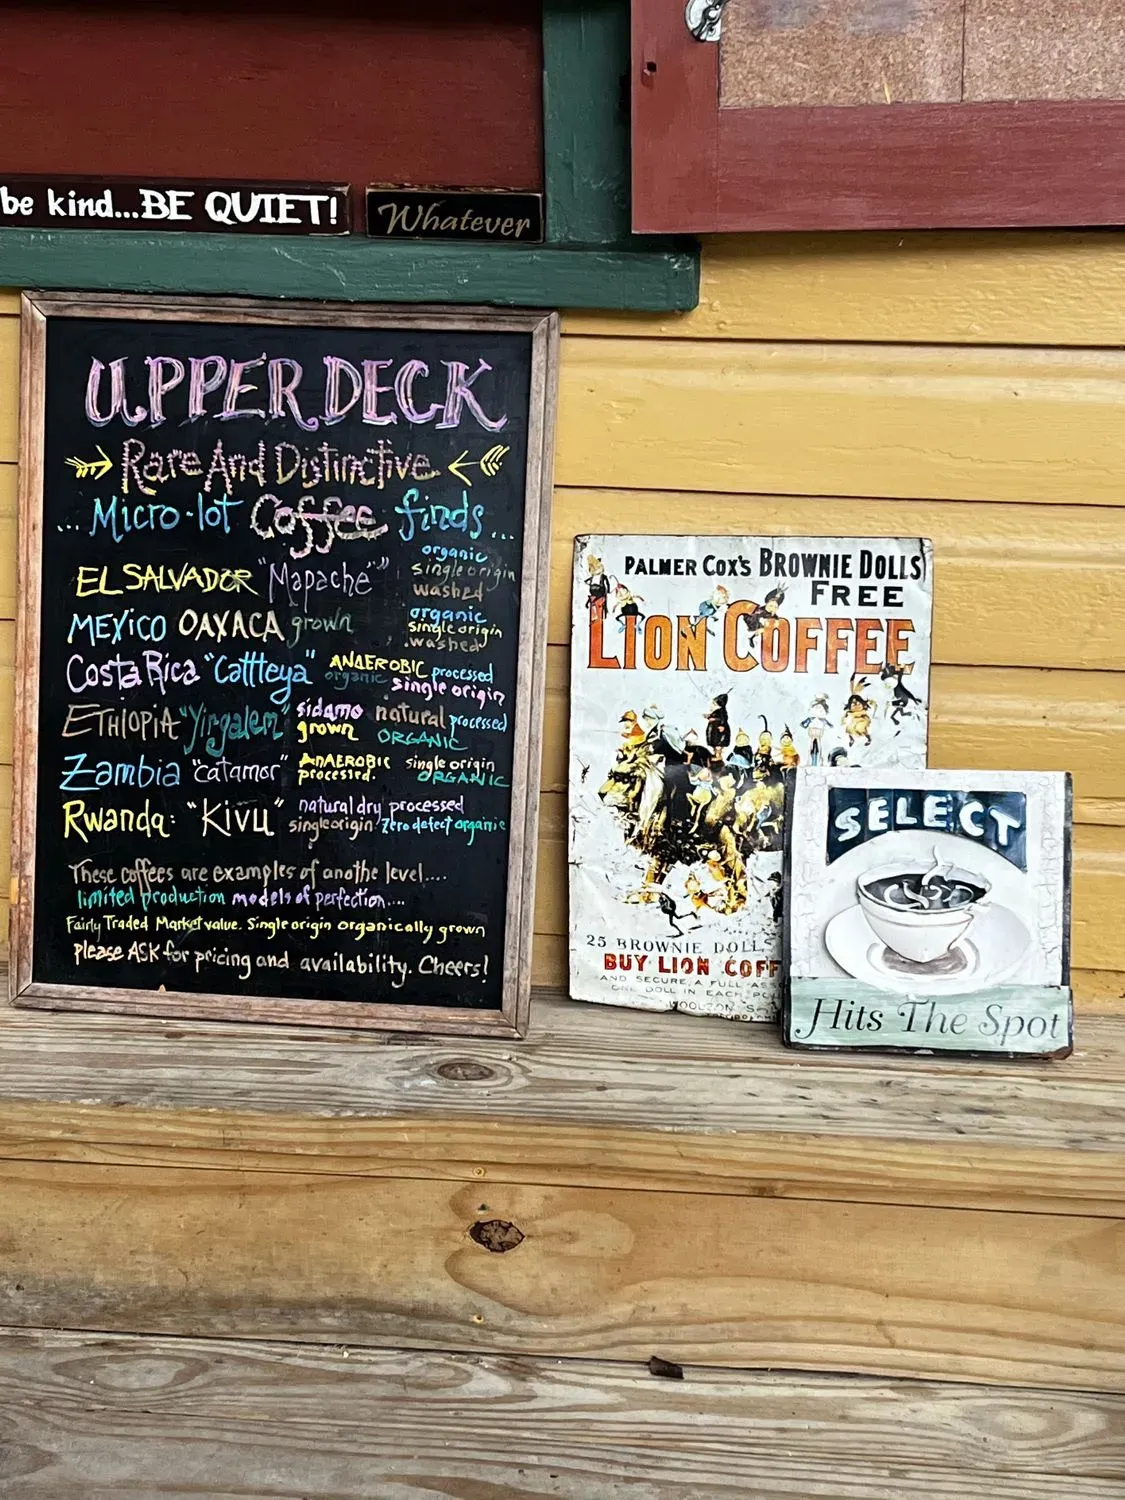 be kind...BE QUIET!
Whatever
UPPER DECK
Rare And Distinctive
... Micro-lot Coffee finds...
EL SALVADOR "Mapache" organic
single origin
washed
MEXICO OAXACA grown organic
single origin
washed
Costa Rica "Cattleya" ANAEROBIC processed
organic single origin
ETHIOPIA "Yirgalem" sidamo natural processed
grown ORGANIC
Zambia "catamor" ANAEROBIC single origin
processed. ORGANIC
Rwanda: "Kivu" natural dry processed
single origin Zero defect organic
These coffees are examples of anothe level....
limited production models of perfection....
Fairly Traded Market value. Single origin organically grown
please ASK for pricing and availability. Cheers!
PALMER COX'S BROWNIE DOLLS
FREE
LION COFFEE
25 BROWNIE DOLLS
BUY LION COFF
AND SECURE A FULL ASS
ONE DOLL IN EACH
WOOLSON
SELECT
Hits The Spot